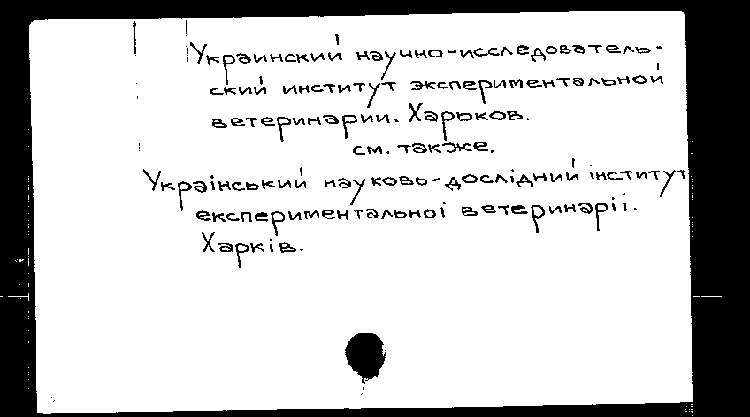 Украинский научно-исследователь-
ский институт экспериментальной
ветеринарии. Харьков.
см. также.
Український науково-дослідний інститут
експериментальної ветеринаріі.
Харків.